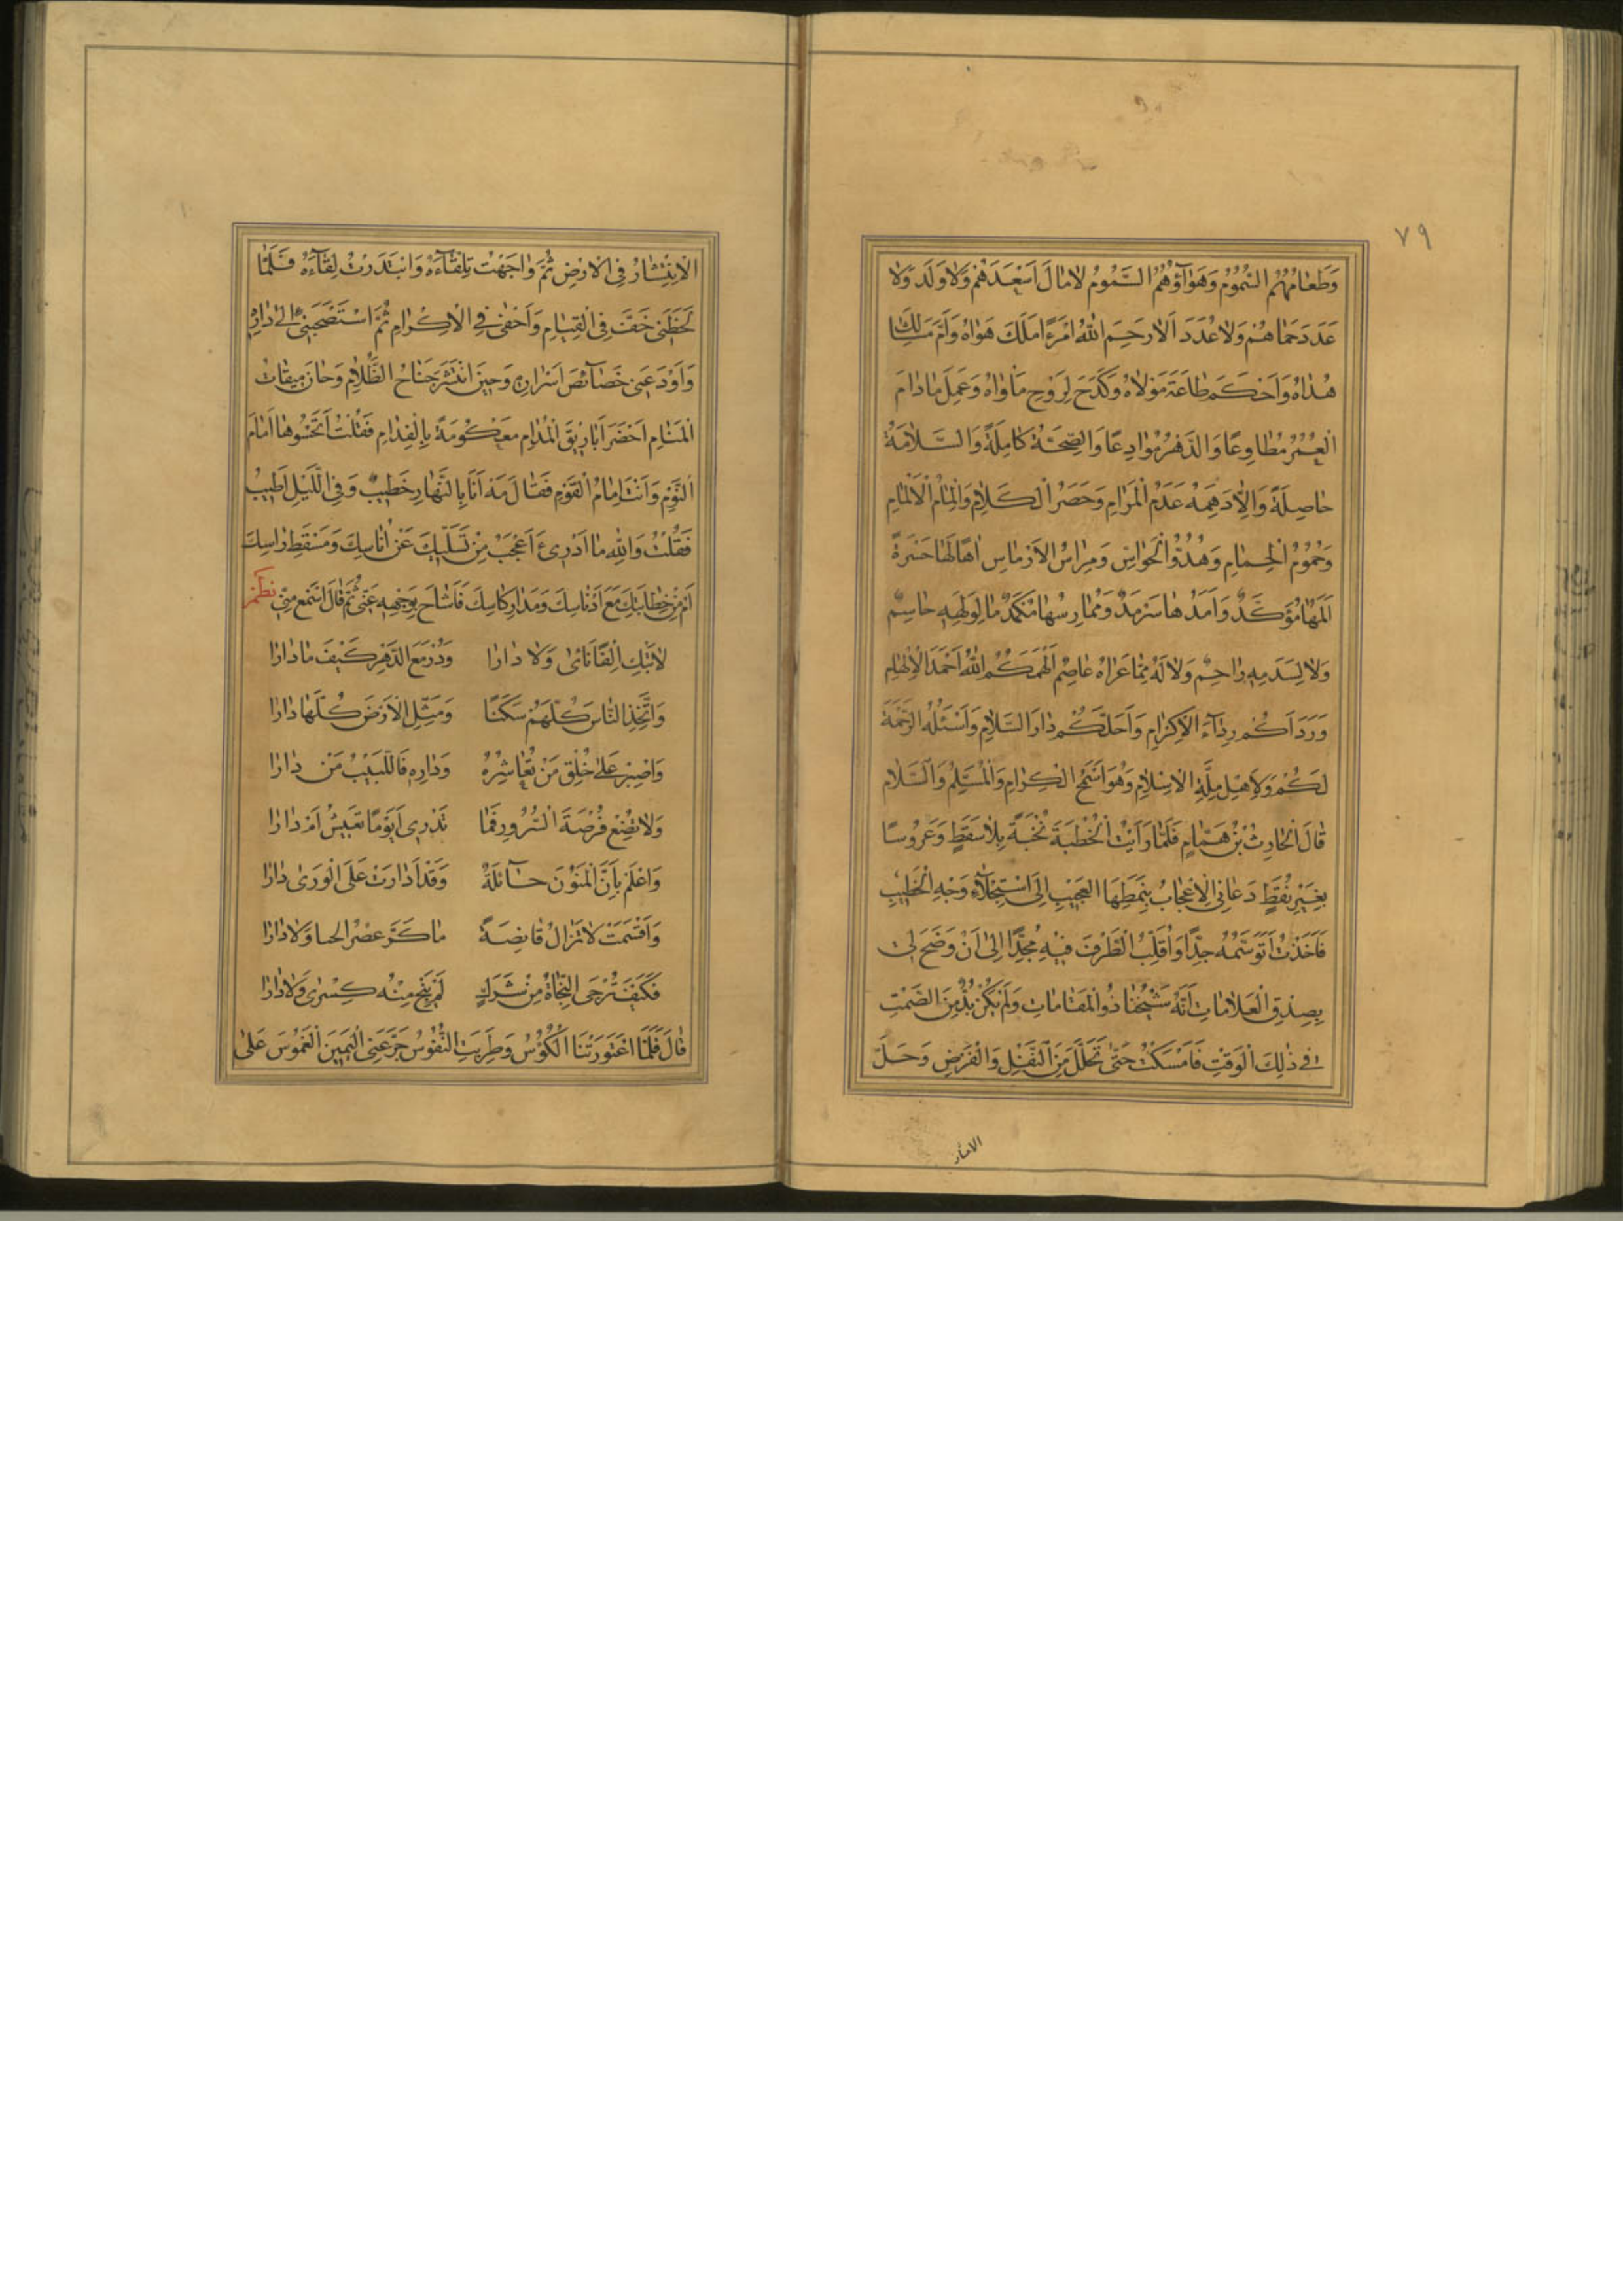 ٧٩
وَطَعَامُهُمُ السُّمُومُ وَهَوَاؤُهُمُ السَّمُومُ لَا مَالَ اَسْعَدَهُمْ وَلَا وَلَدَ وَلَا
عَدَدَ حَمَاهُمْ وَلَا عُدَدَ اَلَا رَحِمَ اللهُ امْرَءًا مَلَكَ هَوَاهُ وَاَمَّ مَسَالِكَ
هُدَاهُ وَاَحْكَمَ طَاعَةَ مَوْلَاهُ وَكَدَحَ لِرَوْحِ مَأْوَاهُ وَعَمِلَ مَادَامَ
الْعُمُرُ مُطَاوِعًا وَالدَّهْرُ مُوَادِعًا وَالصِّحَّةُ كَامِلَةً وَالسَّلَامَةُ
حَاصِلَةً وَاِلَّا دَهِمَهُ عَدَمُ الْمَرَامِ وَحَصَرُ الْكَلَامِ وَاِلْمَامُ الْاٰلَامِ
وَحُمُومُ الْحِمَامِ وَهُدُوُّ الْحَوَاسِّ وَمِرَاسُ الْاَرْمَاسِ اٰهًا لَهَا حَسْرَةً
اَلَمُهَا مُؤَكَّدٌ وَاَمَدُهَا سَرْمَدٌ وَمُمَارِسُهَا مُكْمَدٌ مَا لِوَلَهِهِ حَاسِمٌ
وَلَا لِسَدَمِهِ رَاحِمٌ وَلَا لَهُ مِمَّا عَرَاهُ عَاصِمٌ اَلْهَمَكُمُ اللهُ اَحْمَدَ الْاِلْهَامِ
وَرَدَّاكُمْ رِدَاءَ الْاِكْرَامِ وَاَحَلَّكُمْ دَارَ السَّلَامِ وَاَسْئَلُهُ الرَّحْمَةَ
لَكُمْ وَلِاَهْلِ مِلَّةِ الْاِسْلَامِ وَهُوَ اَسْمَحُ الْكِرَامِ وَالْمُسَلِّمُ وَالسَّلَامُ
قَالَ الْحَارِثُ بْنُ هَمَّامٍ فَلَمَّا رَاَيْتُ الْخُطْبَةَ نُخْبَةً بِلَا سَقَطٍ وَعَرُوسًا
بِغَيْرِ نُقَطٍ دَعَانِي الْاِعْجَابُ بِنَمَطِهَا الْعَجِيبِ اِلَى اسْتِجْلَاءِ وَجْهِ الْخَطِيبِ
فَاَخَذْتُ اَتَوَسَّمُهُ جِدًّا وَاُقَلِّبُ الطَّرْفَ فِيهِ مُجِدًّا اِلَى اَنْ وَضَحَ لِي
بِصِدْقِ الْعَلَامَاتِ اَنَّهُ شَيْخُنَا ذُو الْمَقَامَاتِ وَلَمْ يَكُنْ بُدٌّ مِنَ الصَّمْتِ
فِي ذٰلِكَ الْوَقْتِ فَاَمْسَكْتُ حَتَّى تَحَلَّلَ مِنَ النَّفْلِ وَالْفَرْضِ وَحَلَّ
الْاِنْتِشَارُ فِي الْاَرْضِ ثُمَّ وَاجَهْتُ تِلْقَاءَهُ وَابْتَدَرْتُ لِقَاءَهُ فَلَمَّا
لَحَظَنِي خَفَّ فِي الْقِيَامِ وَاَحْفَى فِي الْاِكْرَامِ ثُمَّ اسْتَصْحَبَنِي اِلَى دَارِهِ
وَاَوْدَعَنِي خَصَائِصَ اَسْرَارِهِ وَحِينَ انْتَشَرَ جَنَاحُ الظَّلَامِ وَحَانَ مِيقَاتُ
الْمَنَامِ اَحْضَرَ اَبَارِيقَ الْمُدَامِ مَعْكُومَةً بِالْفِدَامِ فَقُلْتُ اَتَحْسُوهَا اَمَامَ
النَّوْمِ وَاَنْتَ اِمَامُ الْقَوْمِ فَقَالَ مَهْ اَنَا بِالنَّهَارِ خَطِيبٌ وَفِي اللَّيْلِ اَطِيبُ
فَقُلْتُ وَاللهِ مَا اَدْرِي ءَاَعْجَبُ مِنْ تَسَلِّيكَ عَنْ اُنَاسِكَ وَمَسْقَطِ رَاسِكَ
اَمْ مِنْ خِطَابَتِكَ مَعَ اَدْنَاسِكَ وَمَدَارِ كَاسِكَ فَاَشَاحَ بِوَجْهِهِ عَنِّي ثُمَّ قَالَ اسْمَعْ مِنِّي نظم
لَا تَبْكِ اِلْفًا نَاٰى وَلَا دَارَا وَدُرْ مَعَ الدَّهْرِ كَيْفَ مَا دَارَا
وَاتَّخِذِ النَّاسَ كُلَّهُمْ سَكَنًا وَمَثِّلِ الْاَرْضَ كُلَّهَا دَارَا
وَاصْبِرْ عَلَى خُلْقِ مَنْ تُعَاشِرُهُ وَدَارِهِ فَاللَّبِيبُ مَنْ دَارَا
وَلَا تُضِعْ فُرْصَةَ السُّرُورِ فَمَا تَدْرِي اَيَوْمًا تَعِيشُ اَمْ دَارَا
وَاعْلَمْ بِاَنَّ الْمَنُونَ جَائِلَةٌ وَقَدْ اَدَارَتْ عَلَى الْوَرَى دَارَا
وَاَقْسَمَتْ لَا تَزَالُ قَانِصَةً مَا كَرَّ عَصْرُ الحيا وَلَا دَارَا
فَكَيْفَ تُرْجَى النَّجَاةُ مِنْ شَرَكٍ لَمْ يَنْجُ مِنْهُ كِسْرَى وَلَا دَارَا
قَالَ فَلَمَّا اعْتَوَرَتْنَا الْكُؤُسُ وَطَرِبَتِ النُّفُوسُ جَرَّعَنِي الْيَمِينَ الْغَمُوسَ عَلَى